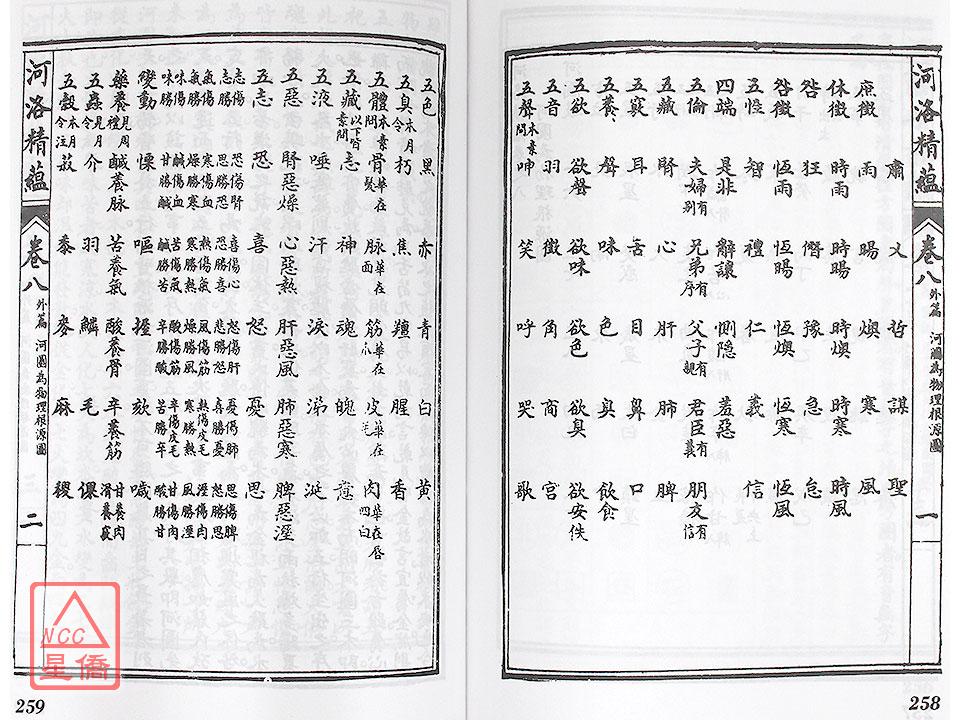 河洛精蘊
卷八
外篇 河圖為物理根源圖
一
肅 乂 哲 謀 聖
庶徵 雨 暘 燠 寒 風
休徵 時雨 時暘 時燠 時寒 時風
咎 狂 僭 豫 急 怠
咎徵 恆雨 恆暘 恆燠 恆寒 恆風
五性 智 禮 仁 義 信
四端 是非 辭讓 惻隱 羞惡
五倫 夫婦有別 兄弟有序 父子有親 君臣有義 朋友有信
五臟 腎 心 肝 肺 脾
五竅 耳 舌 目 鼻 口
五養 聲 味 色 臭 飲食
五欲 欲聲 欲味 欲色 欲臭 欲安佚
五音 羽 徵 角 商 宮
五聲本素問 呻 笑 呼 哭 歌
258
五色 黑 赤 青 白 黃
五臭本月令 朽 焦 羶 腥 香
五體本素問 骨華在髮 脈華在面 筋華在爪 皮華在毛 肉華在唇四白
五藏以下皆素問 志 神 魂 魄 意
五液 唾 汗 淚 涕 涎
五惡 腎惡燥 心惡熱 肝惡風 肺惡寒 脾惡溼
五志 恐 喜 怒 憂 思
志傷志勝 恐傷腎思勝恐 喜傷心恐勝喜 怒傷肝悲勝怒 憂傷肺喜勝憂 思傷脾怒勝思
氣傷氣勝 寒傷血燥勝寒 熱傷氣寒勝熱 風傷筋燥勝風 熱傷皮毛寒勝熱 溼傷肉風勝溼
味傷味勝 鹹傷血甘勝鹹 苦傷氣鹹勝苦 酸傷筋辛勝酸 辛傷皮毛苦勝辛 甘傷肉酸勝甘
變動 慄 嘔 握 欬 噦
藥養見周禮 鹹養脈 苦養氣 酸養骨 辛養筋 甘養肉滑養竅
五蟲見月令 介 羽 鱗 毛 倮
五穀本月令注 菽 黍 麥 麻 稷
河洛精蘊
卷八
外篇 河圖為物理根源圖
二
259
NCC
星僑